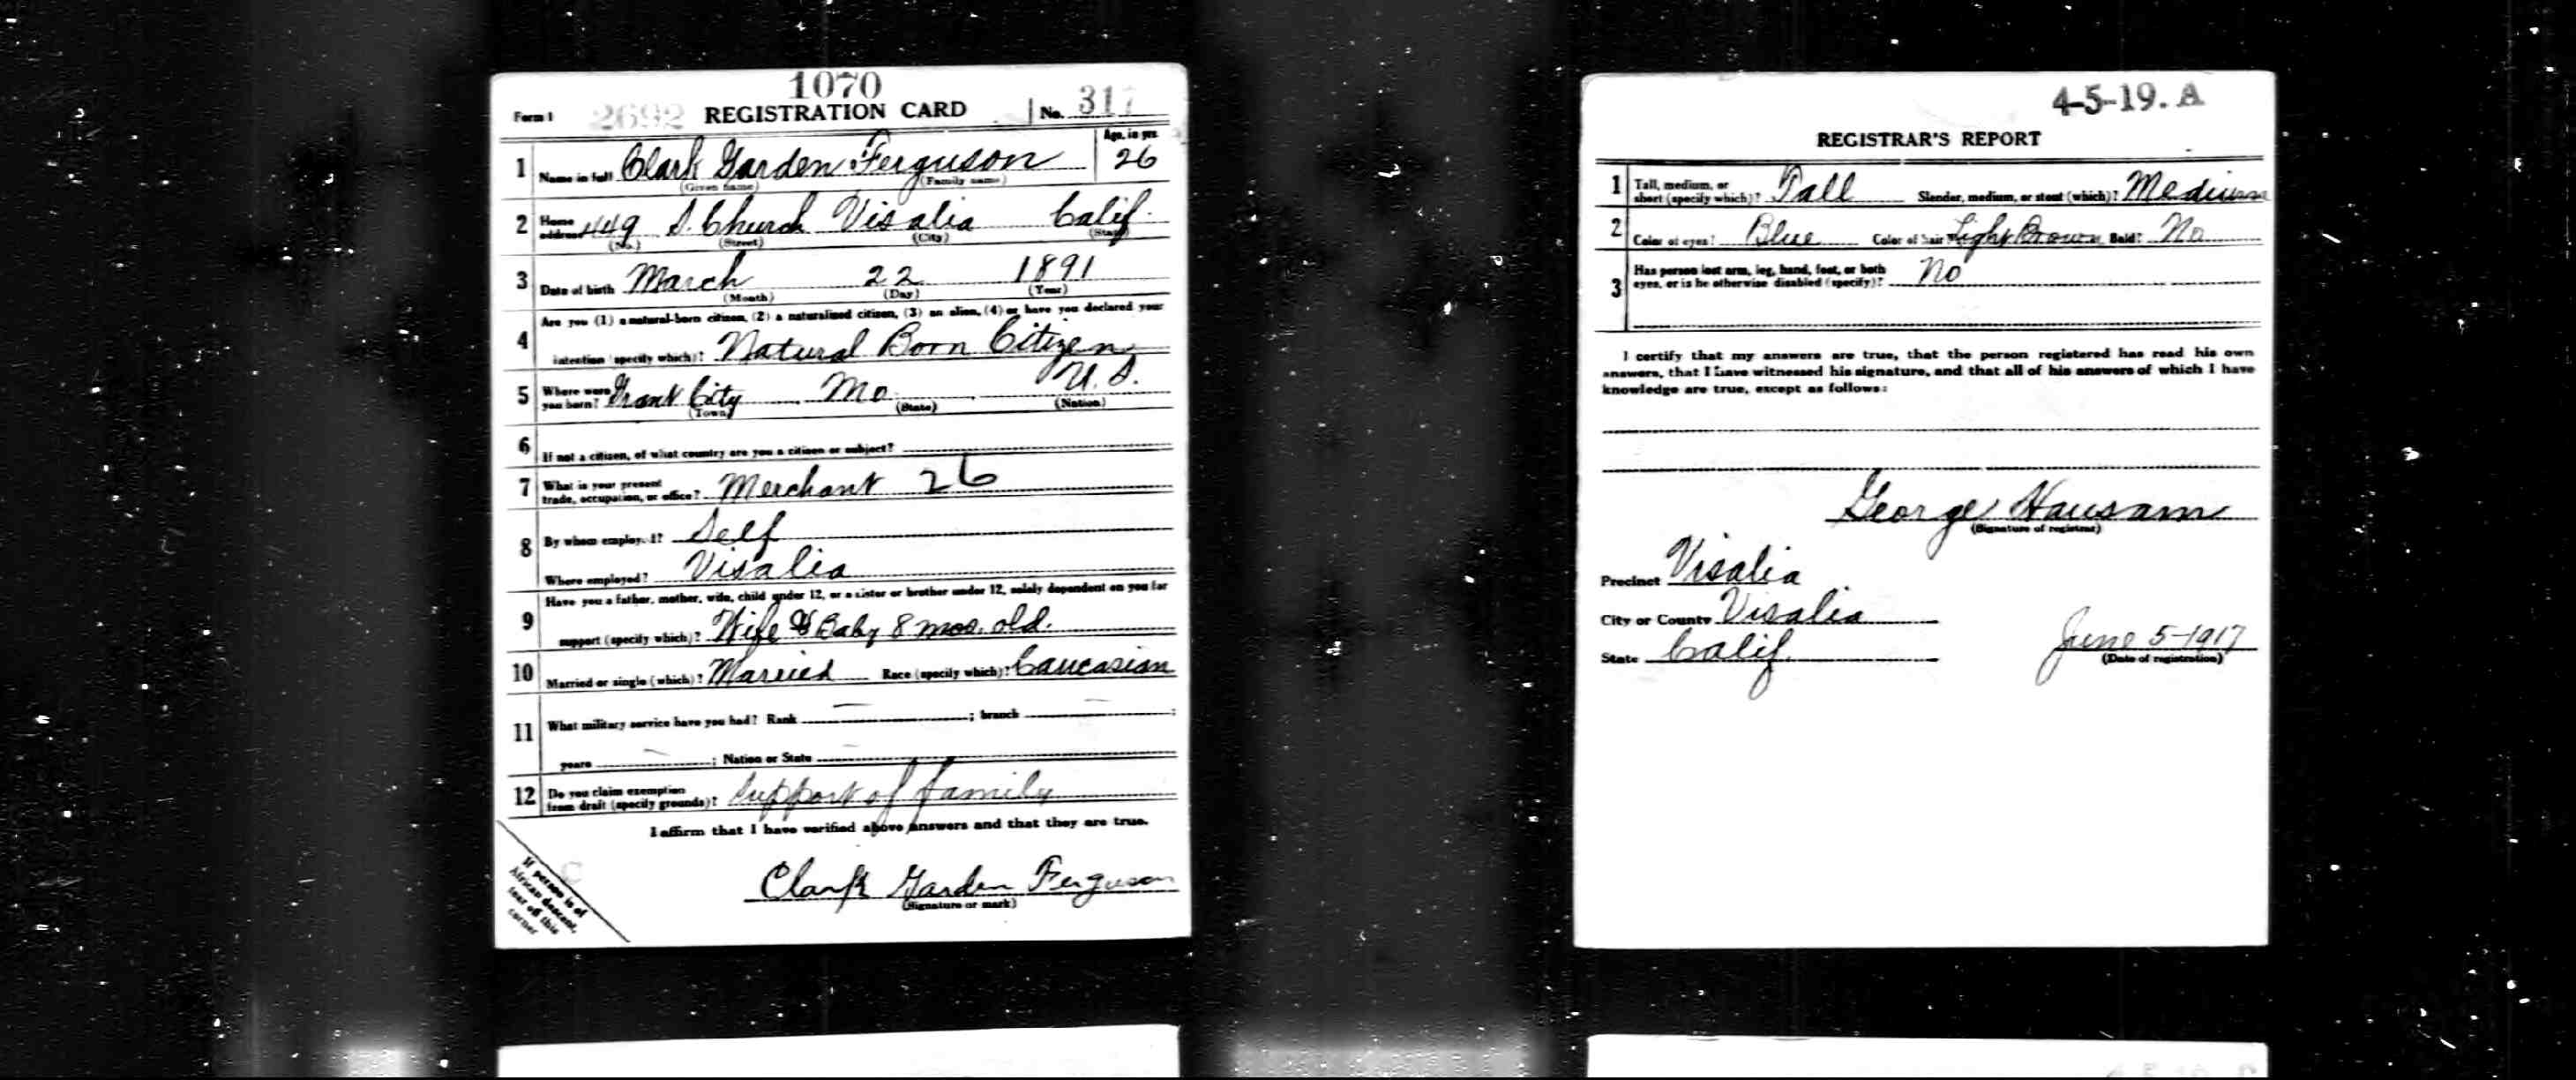 1070
Form 1 2692 REGISTRATION CARD No. 317
1 Name in full Clark Garden Ferguson Age, in yrs. 26
(Given name) (Family name)
2 Home address 449 S. Church Visalia Calif.
(No.) (Street) (City) (State)
3 Date of birth March 22 1891
(Month) (Day) (Year)
Are you (1) a natural-born citizen, (2) a naturalized citizen, (3) an alien, (4) or have you declared your
4 intention (specify which)? Natural Born Citizen
5 Where were you born? Grant City Mo U.S.
(Town) (State) (Nation)
6 If not a citizen, of what country are you a citizen or subject?
7 What is your present trade, occupation, or office? Merchant 26
8 By whom employed? Self
Where employed? Visalia
Have you a father, mother, wife, child under 12, or a sister or brother under 12, solely dependent on you for
9 support (specify which)? Wife & Baby 8 mos. old.
10 Married or single (which)? Married Race (specify which)? Caucasian
11 What military service have you had? Rank — ; branch — ;
years — ; Nation or State —
12 Do you claim exemption from draft (specify grounds)? Support of family
I affirm that I have verified above answers and that they are true.
Clark Garden Ferguson
(Signature or mark)
If person is of
African descent,
tear off this
corner
4-5-19. A
REGISTRAR'S REPORT
1 Tall, medium, or short (specify which)? Tall Slender, medium, or stout (which)? Medium
2 Color of eyes? Blue Color of hair? Light Brown Bald? No
3 Has person lost arm, leg, hand, foot, or both eyes, or is he otherwise disabled (specify)? No
I certify that my answers are true, that the person registered has read his own
answers, that I have witnessed his signature, and that all of his answers of which I have
knowledge are true, except as follows:
George Hausam
(Signature of registrar)
Precinct Visalia
City or County Visalia
State Calif. June 5-1917
(Date of registration)